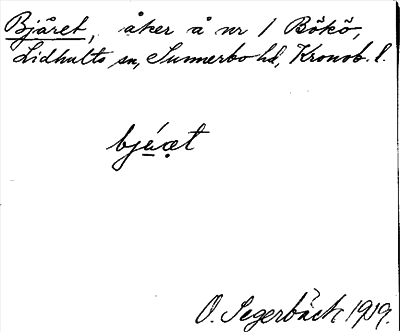 Bjäret, åker å nr 1 Bökö,
Lidhults sn, Sunnerbo hd, Kronob. l.
bjéæt
O. Segerbäck 1919.